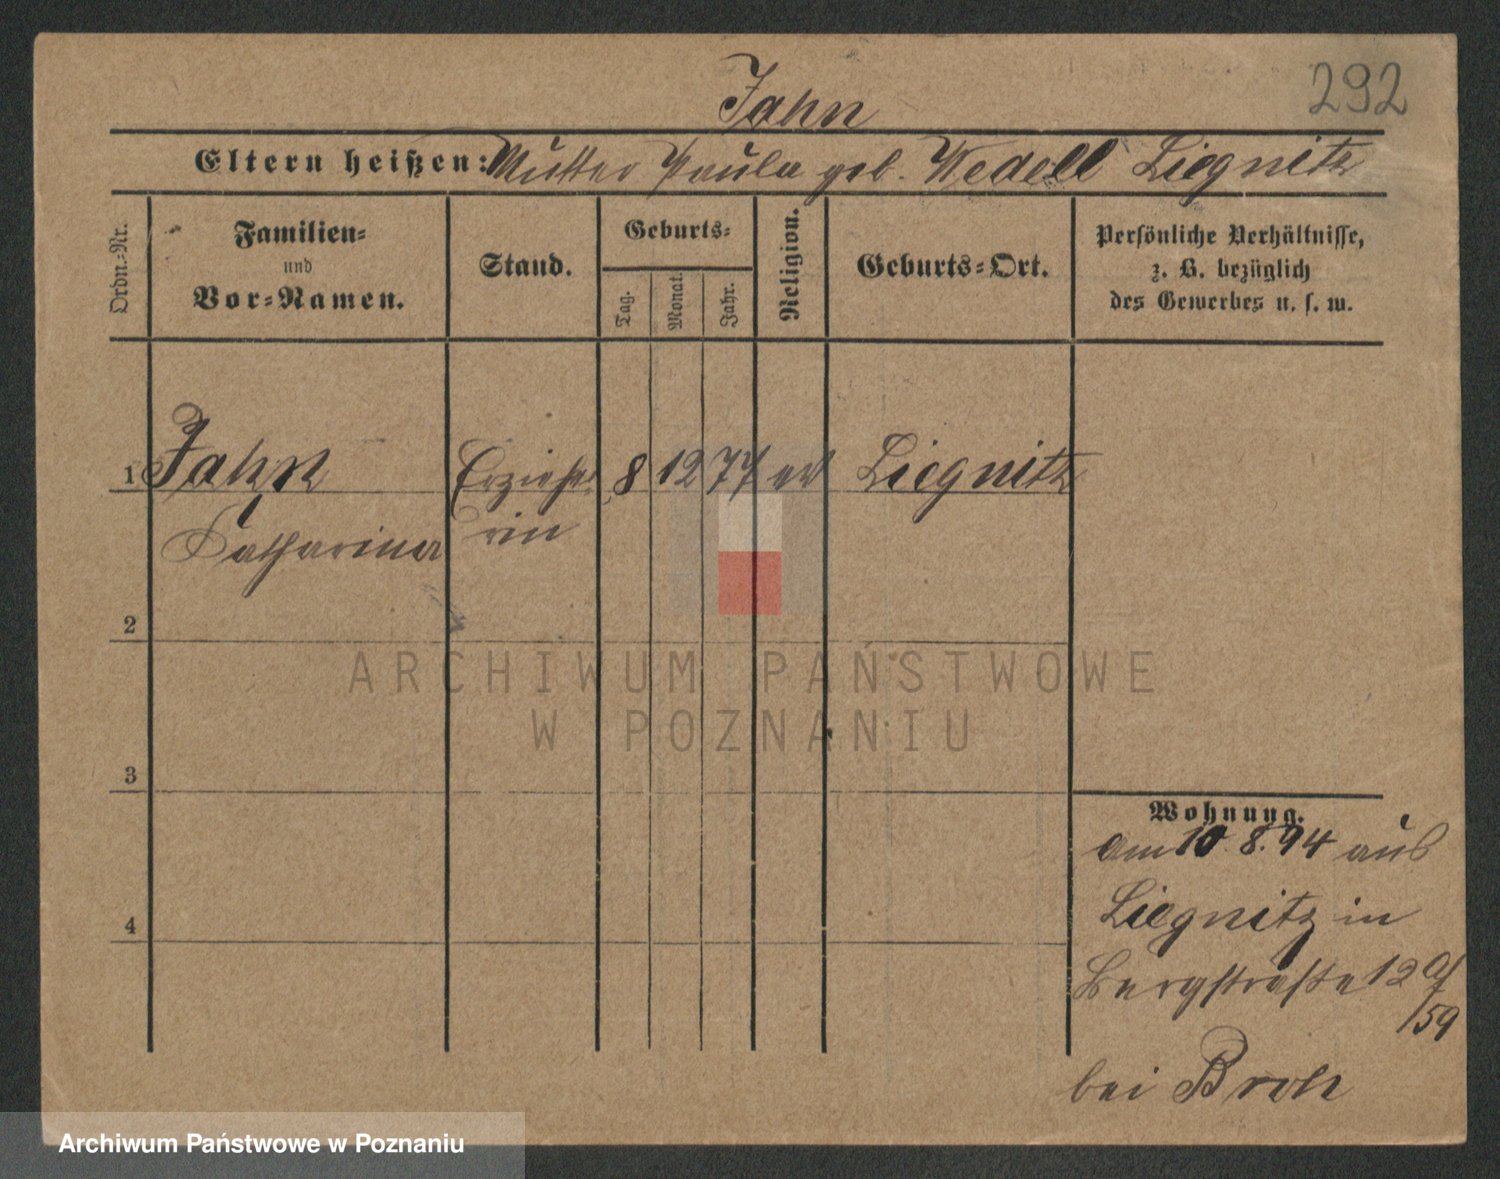 292
Jahn
Eltern heißen: Mutter Paula geb. Wedell Liegnitz
Ordn.-Nr.
Familien-
und
Vor-Namen.
Stand.
Geburts-
Tag.
Monat.
Jahr.
Religion.
Geburts-Ort.
Persönliche Verhältnisse,
z. B. bezüglich
des Gewerbes u. s. w.
1 Jahn Erziehe- 8 12 77 ev Liegnitz
Katharina rin
2
3
4
Wohnung.
am 10.8.94 aus
Liegnitz in
Bergstraße 12
/59
bei
ARCHIWUM PAŃSTWOWE
W POZNANIU
Archiwum Państwowe w Poznaniu